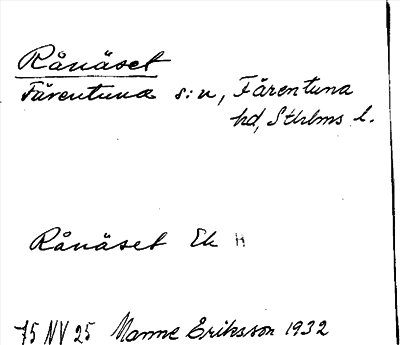 Rånäset
Färentuna s:n, Färentuna
hd, Sthlms l.
Rånäset Ek H
75 NV 25 Manne Eriksson 1932